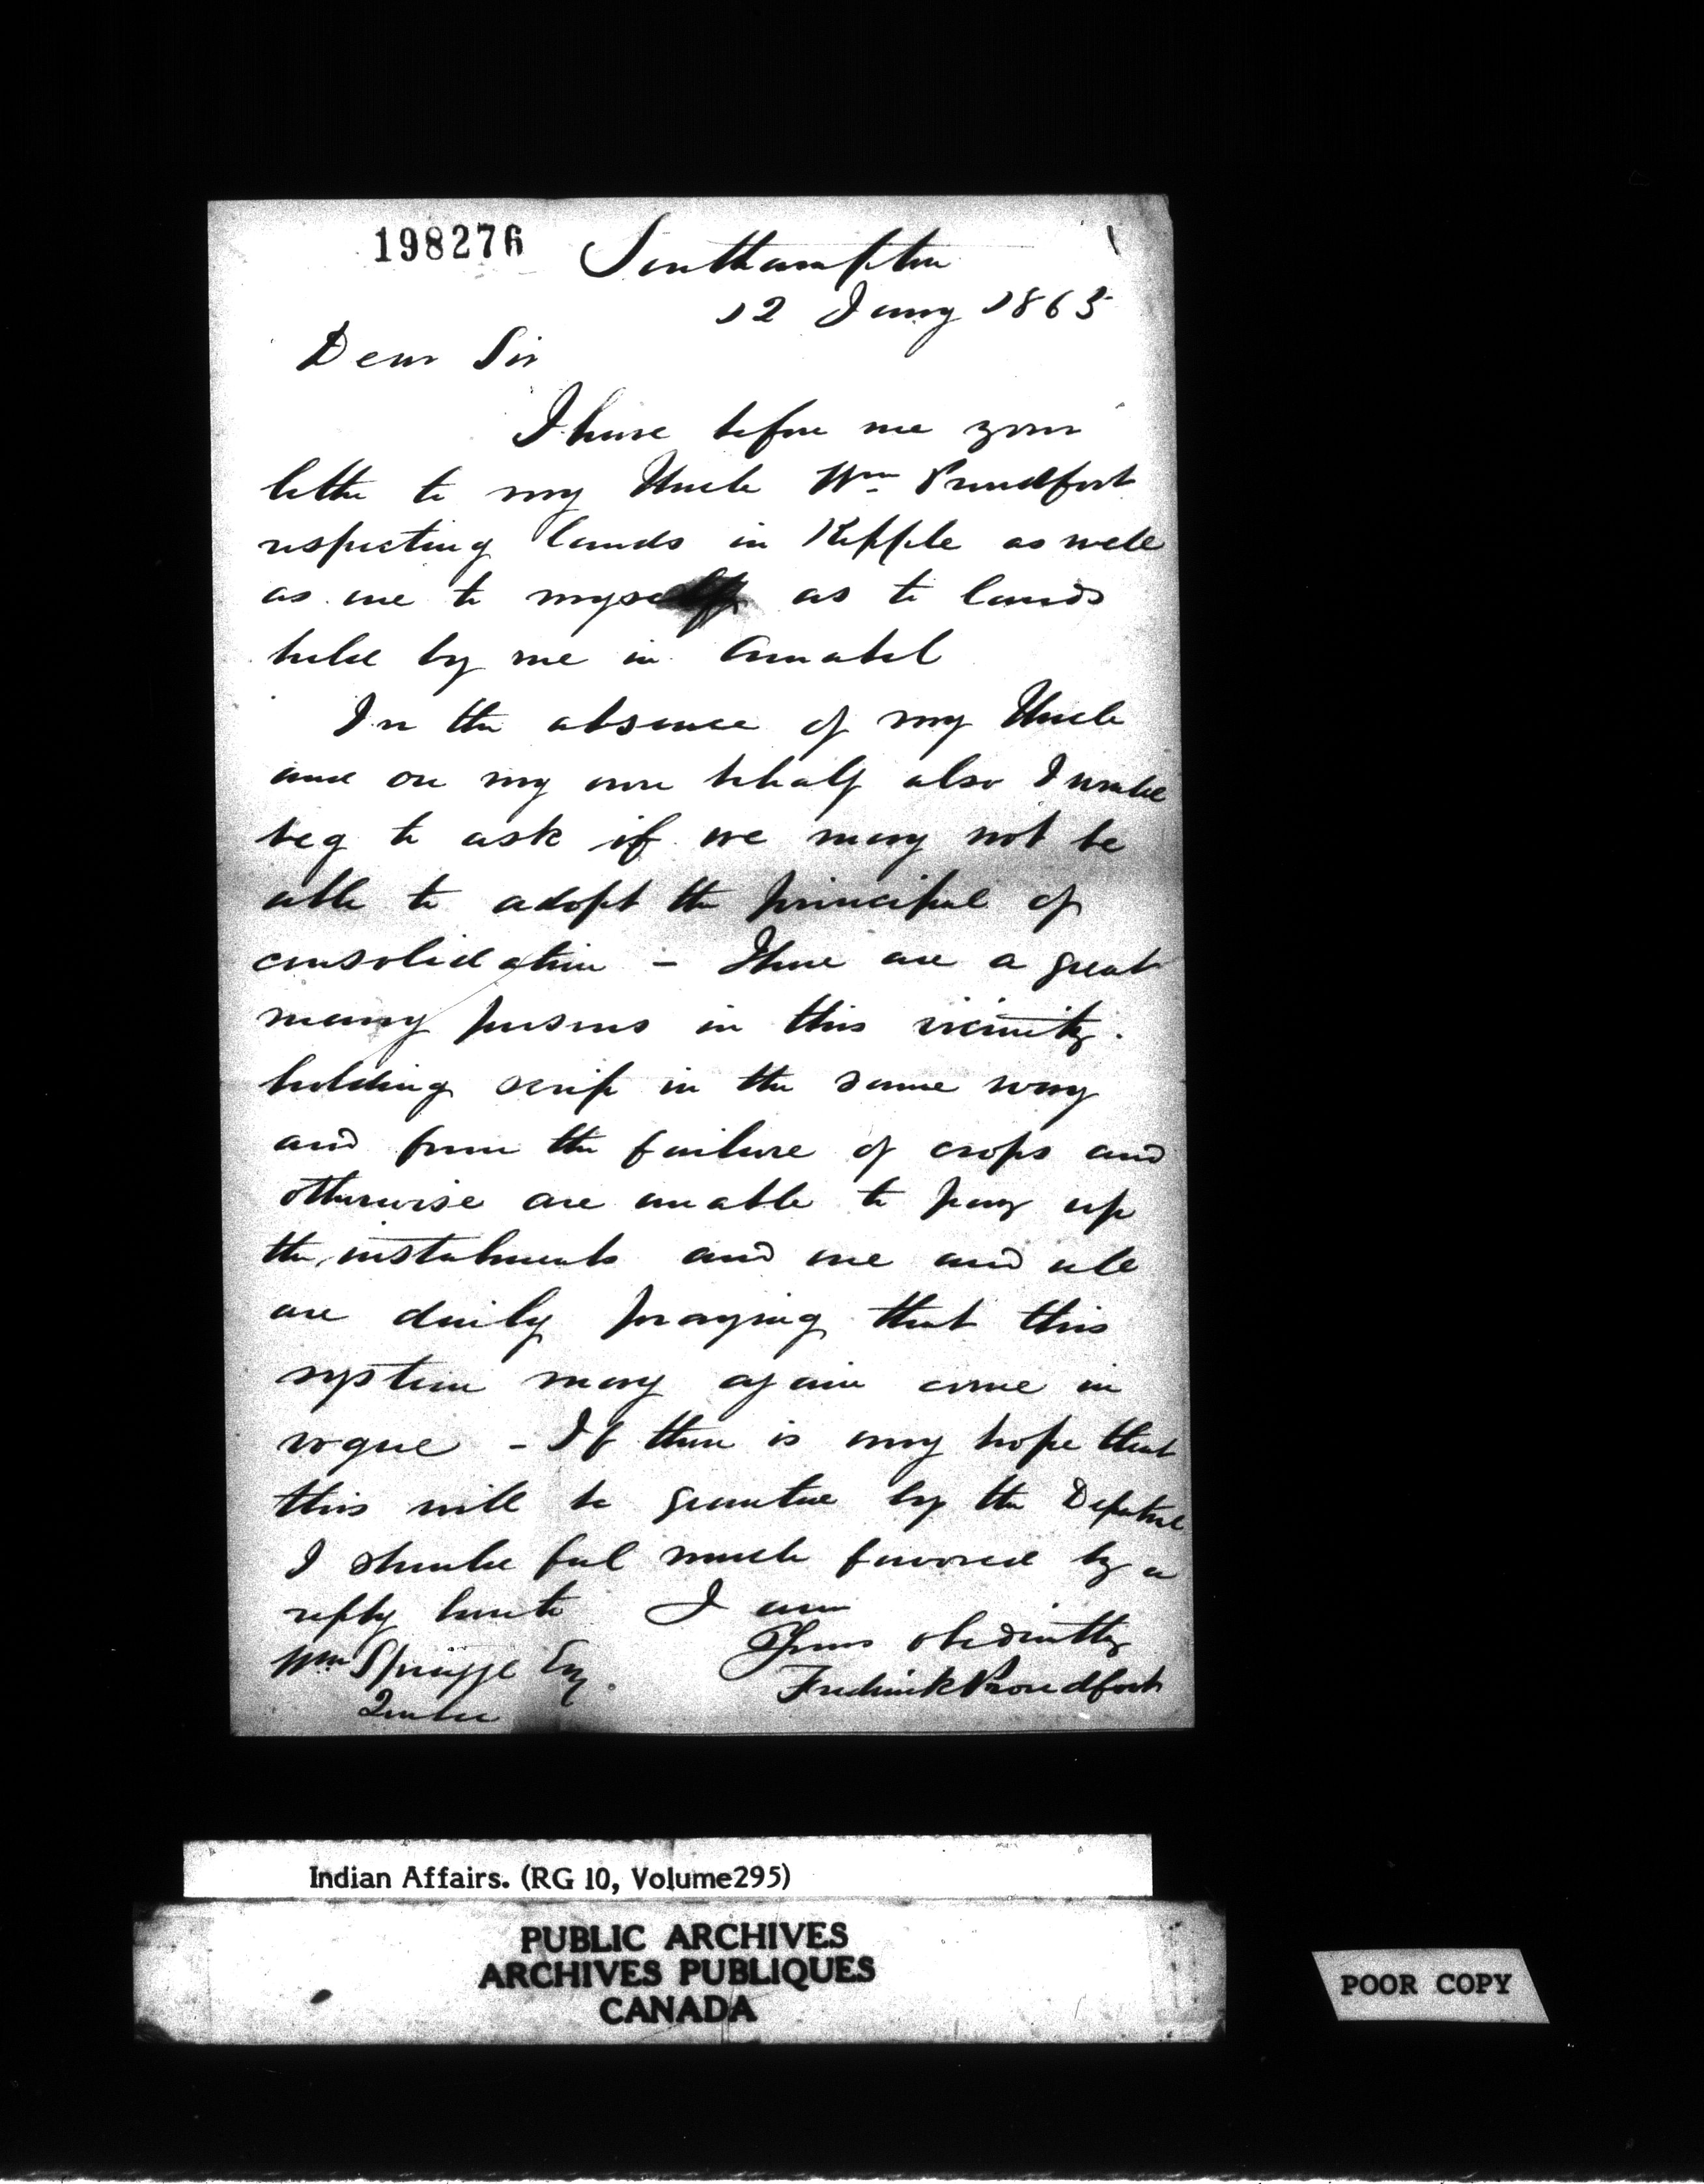 198276 Southampton
12 Jany 1865
Dear Sir
I have before me your
letter to my Uncle Wm Proudfoot
respecting lands in Kepple as well
as one to myself as to lands
held by me in Amabel
In the absence of my Uncle
and on my own behalf also I would
beg to ask if we may not be
able to adopt the principal of
consolidation - There are a great
many persons in this vicinity
holding scrip in the same way
and from the failure of crops and
otherwise are unable to pay up
the instalments and one and all
are daily praying that this
system may again come in
vogue - If there is any hope that
this will be granted by the
I should feel much favored by a
reply hereto I am
Yours obediently
Fredrick Proudfoot
Wm Spragge Esq.
Quebec
Indian Affairs. (RG 10, Volume295)
PUBLIC ARCHIVES
ARCHIVES PUBLIQUES
CANADA
POOR COPY